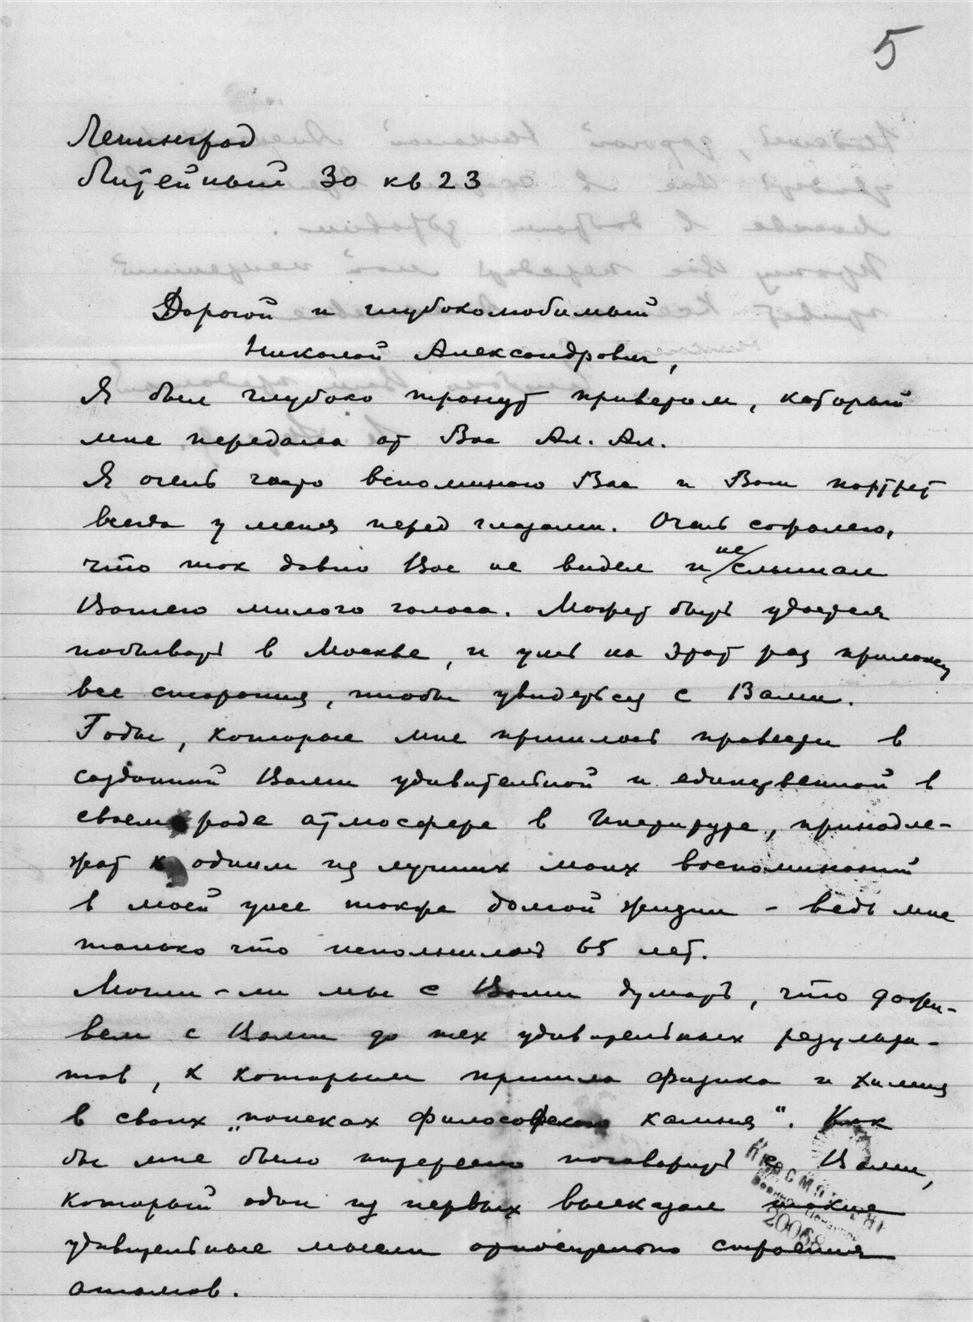 5
Ленинград
Литейный 30 кв 23
Дорогой и глубоколюбимый
Николай Александрович,
Я был глубоко тронут приветом, который
мне передала от Вас Ал. Ал.
Я очень часто вспоминаю Вас и Ваш портрет
всегда у меня перед глазами. Очень сожалею,
что так давно Вас не видел и не слышал
Вашего милого голоса. Может быть удастся
побывать в Москве, и уже на этот раз приложу
все старания, чтобы увидеться с Вами.
Годы, которые мне пришлось провести в
созданной Вами удивительной и единственной в
своем роде атмосфере в Институте, принадле-
жат к одним из лучших моих воспоминаний
в моей уже также долгой жизни – ведь мне
только что исполнилось 65 лет.
Могли-ли мы с Вами думать, что дожи-
вем с Вами до тех удивительных результа-
тов, к которым пришла физика и химия
в своих „поисках философского камня“. Как
бы мне было интересно поговорить с Вами,
который один из первых высказал такие
удивительные мысли относительно строения
атомов.